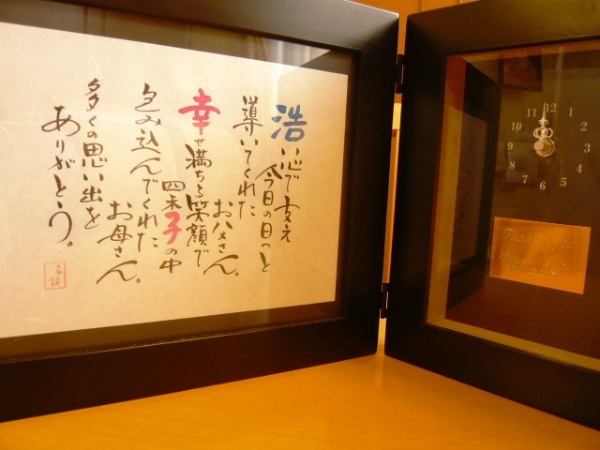 浩い心で支え
今日の日へと
導いてくれた
お父さん。
幸せ満ちる笑顔で
子の中
包み込んでくれた
お母さん。
多くの思い出を
ありがとう。
12
1
2
3
4
5
6
7
8
9
10
11